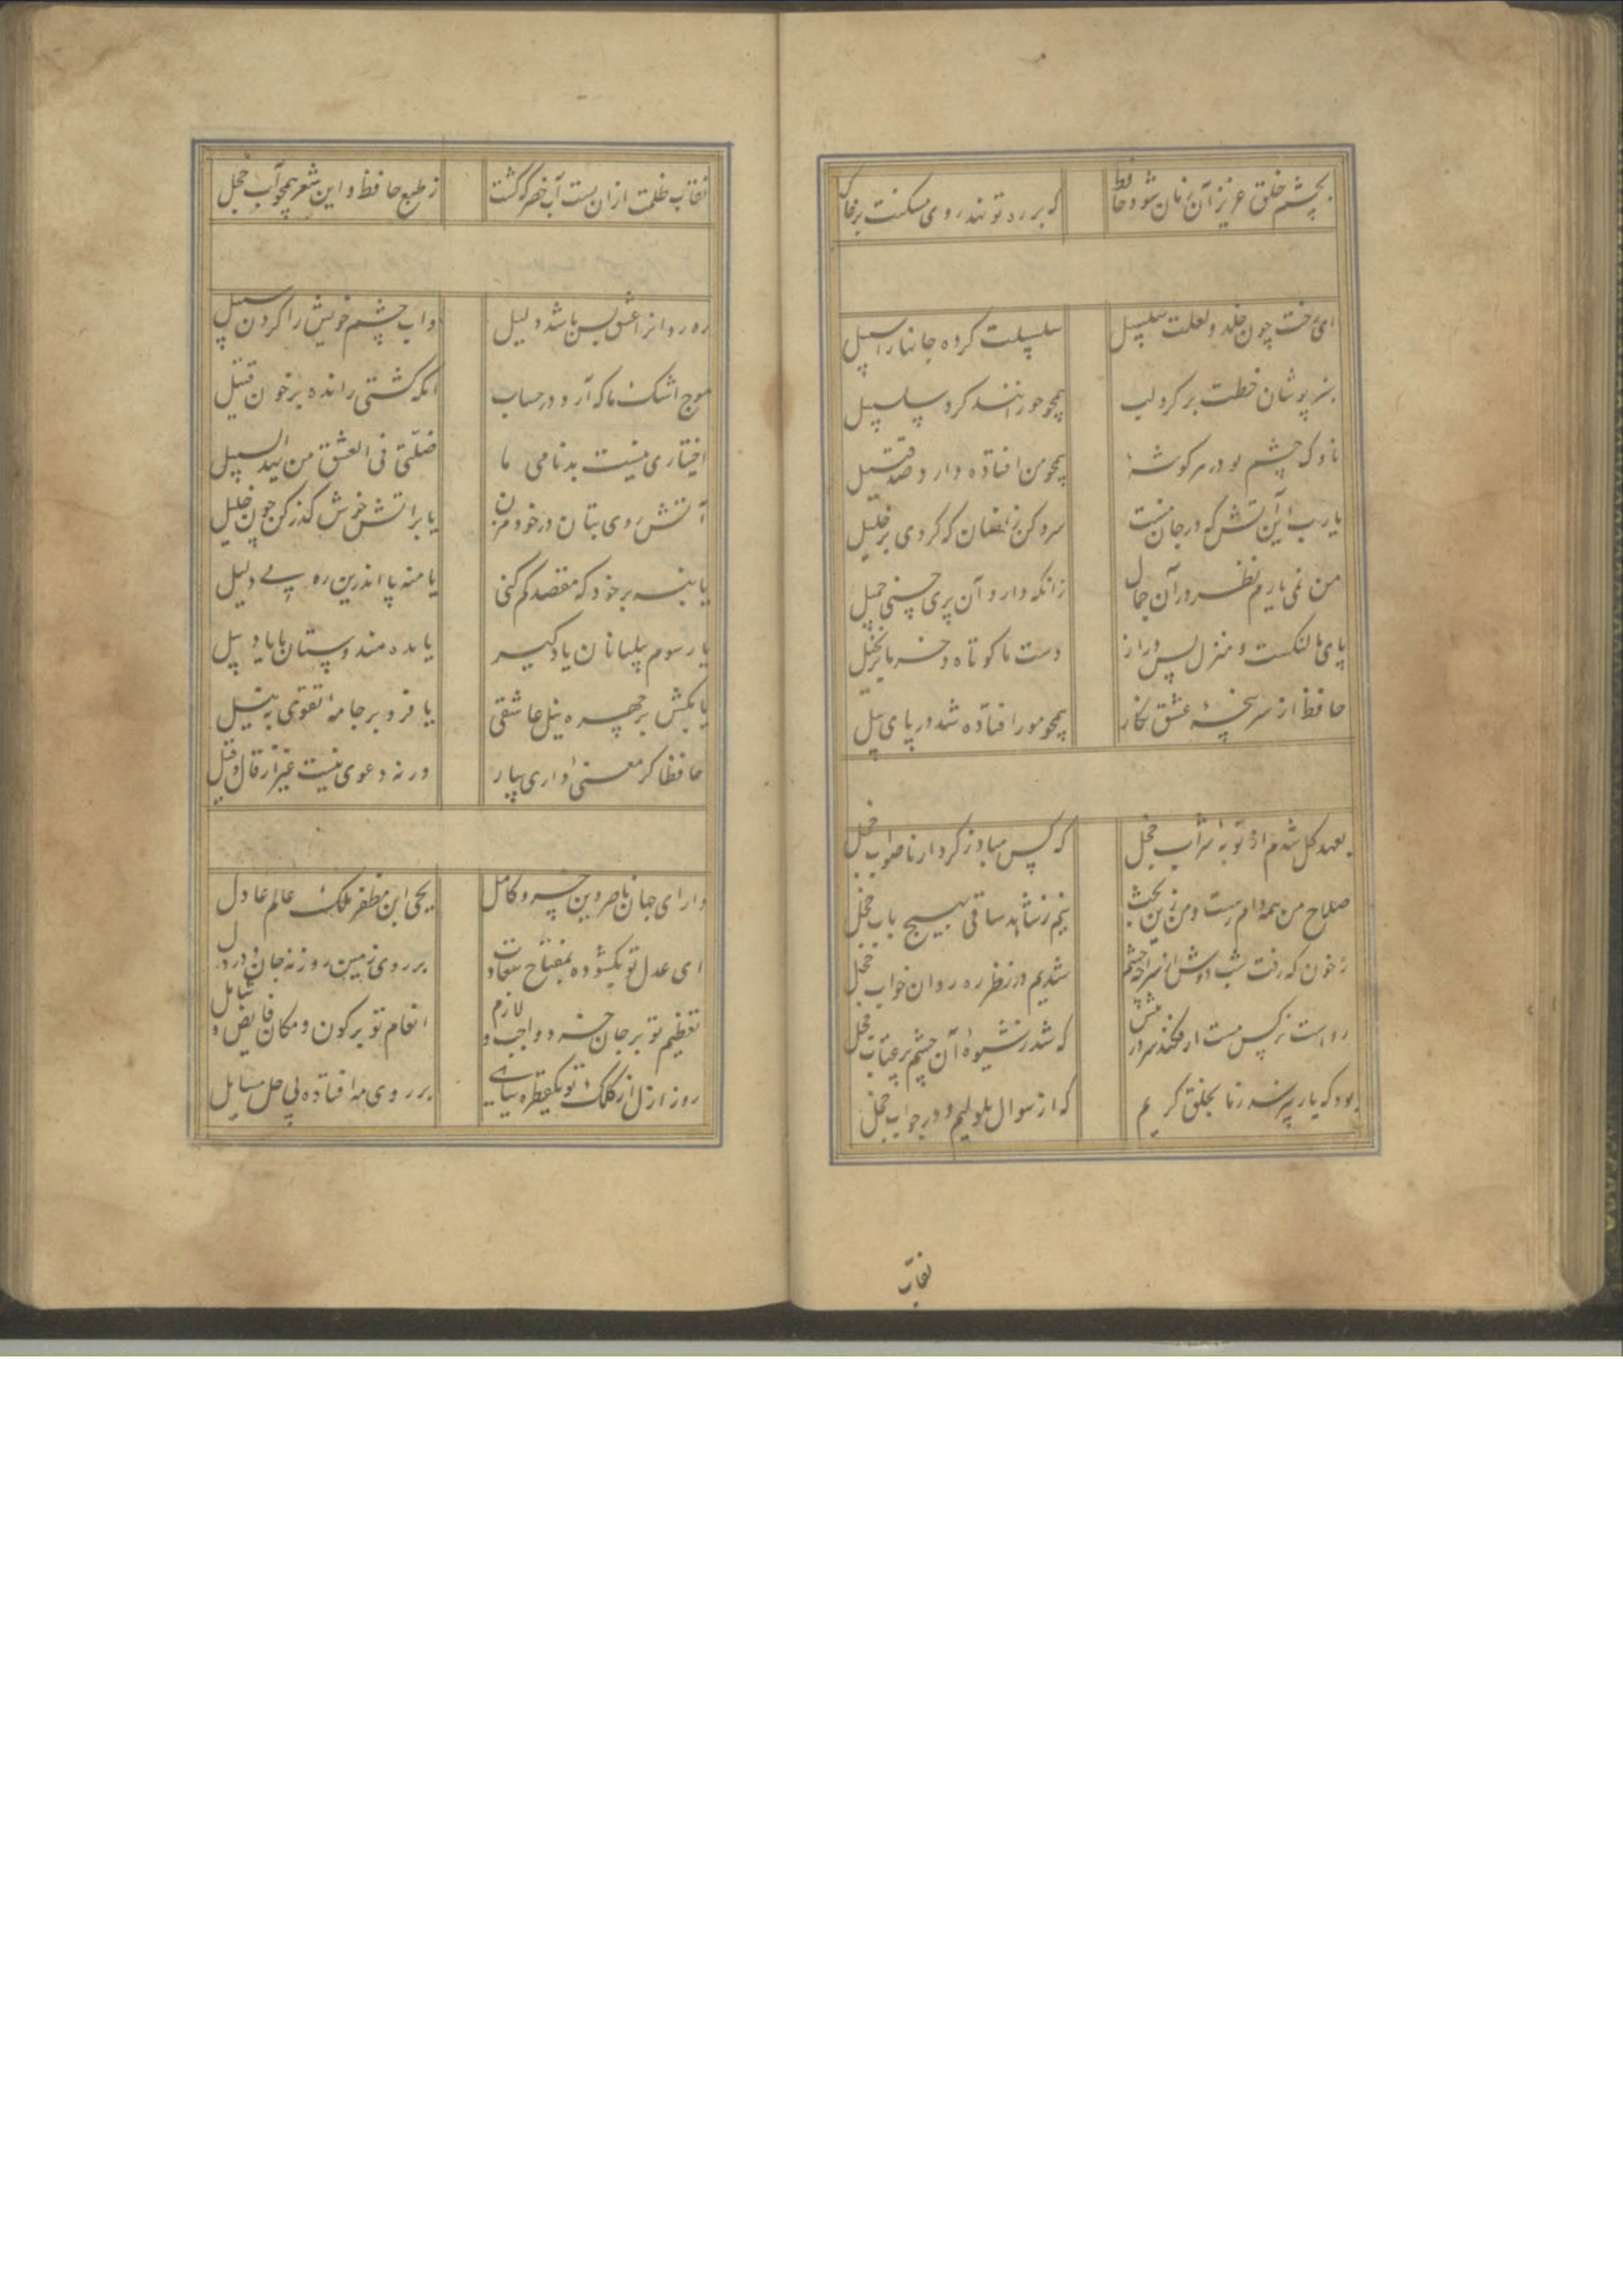 بچشم خلق عزیز آن زمان شود حافظ که بر در تو نهد روی مسکنت برخاک
ای رخت چون خلد و لعلت سلسبیل سلسبیلت کرده جانها را سبیل
سبزپوشان خطت بر کرد لب همچو حورانند کرد سلسبیل
ناوک چشم تو در هر کوشهٔ همچو من افتاده دارد صد قتیل
یارب این آتش که در جان منست سرد کن زانسان که کردی بر خلیل
من نمی یارم نظر در آن جمال زانکه دارد آن پری حسنی جمیل
پای ما لنکست و منزل بس دراز دست ما کوتاه و خرما بر نخیل
حافظ از سرپنجهٔ عشق نکار همچو مور افتاده شد در پای پیل
بعهد کل شدم از توبهٔ شراب خجل که کس مباد ز کردار ناصواب خجل
صلاح من همه دام رهست و من زین بحث نیم ز شاهد ساقی بهیچ باب خجل
ز خون که رفت شب دوش از سراچه چشم شدیم در نظر ره روان خواب خجل
رواست نرکس مست ار فکند سر در پیش که شد ز شیوهٔ آن چشم پر عتاب خجل
بود که یار نپرسد زما بخلق کریم که از سوال ملولیم و در جواب خجل
نقاب
نقاب ظلمت ازان بست آب خضر که کشت ز طبع حافظ و این شعر همچو آب خجل
ره روانرا عشق بس باشد دلیل و آب چشم خویش را کردن سبیل
موج اشک ما که آرد در حساب آنکه کشتی رانده بر خون قتیل
اختیاری نیست بدنامی ما ضلنی فی العشق من یهد السبیل
آتش روی بتان در خود مزن یا بر آتش خوش کذر کن چون خلیل
یا بنه بر خود که مقصد کم کنی یا منه پا اندرین ره بی دلیل
یا رسوم پیلبانان یاد کیر یا مده هندوستان با یاد پیل
یا مکش بر چهره نیل عاشقی یا فرو بر جامهٔ تقوی به نیل
حافظا کر معنی داری بیار ورنه دعوی نیست غیر از قال و قیل
دارای جهان ناصر دین خسرو کامل یحیی ابن مظفر ملک عالم عادل
ای عدل تو بکشوده بمفتاح سعادت بر روی زمین روزنه جان و در دل
تعظیم تو بر جان خرد واجب و لازم انعام تو بر کون و مکان فایض و شامل
روز ازل از کلک تو یکقطره سیاهی بر روی مه افتاده پی حل مسایل